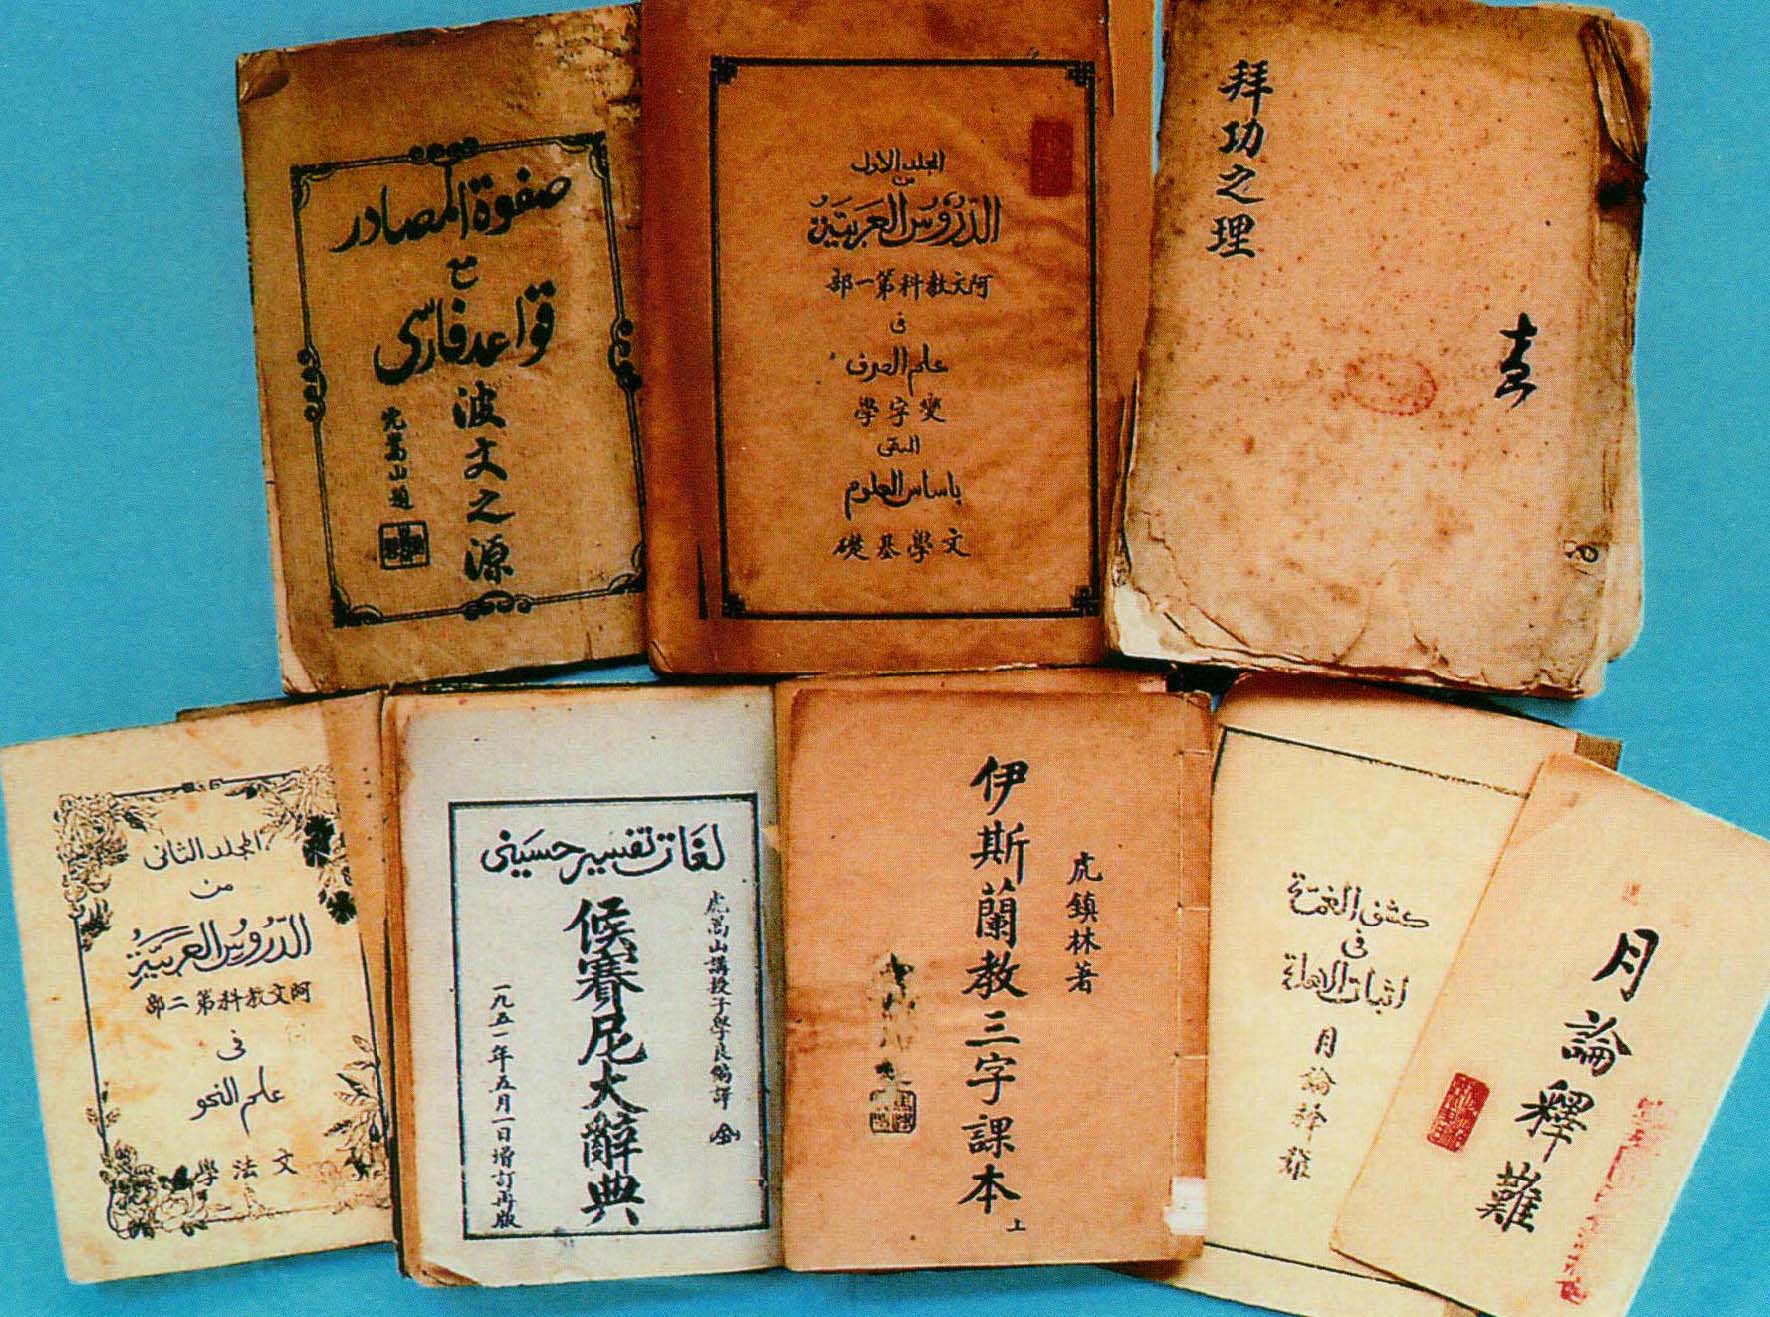 صفوة المصادر
قواعد فارسى
波文之源
虎嵩山題
المجلد الاول
من
الدُّرُوسُ العَرَبِيَّةُ
阿文教科第一部
فى
علم الصرف
變字學
باساس العلوم
文學基礎
拜功之理
المجلد الثانى
من
الدُّرُوسُ العَرَبِيَّةُ
阿文教科第二部
فى
علم النحو
文法學
لغات تفسير حسينى
虎嵩山講授子學良編譯
候賽尼大辭典
一九五一年五月一日增訂再版
虎鎮林著
伊斯蘭教三字課本
上
كشف الغمة
فى
اثبات الاهلة
月論釋難
月論釋難